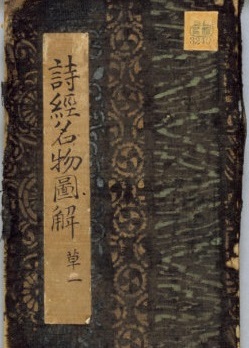 詩經名物圖解 草一